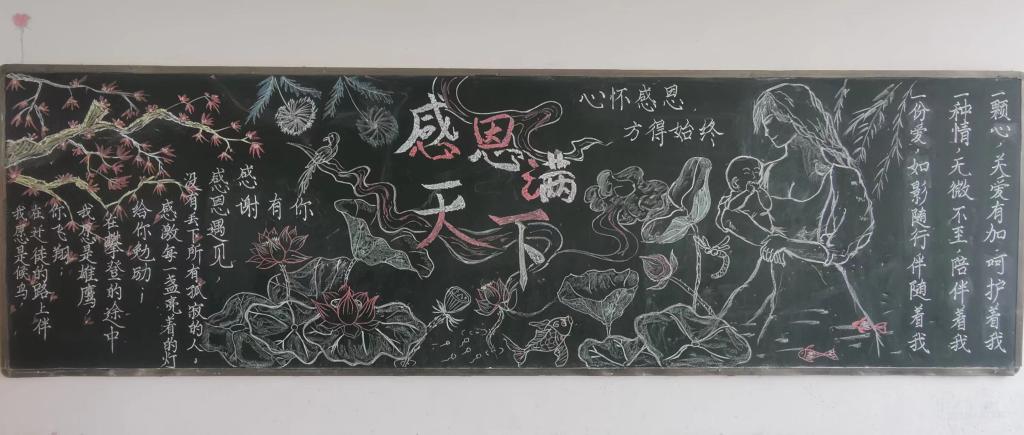 感恩满
天下
心怀感恩,
方得始终
一颗心,关爱有加呵护着我
一种情,无微不至陪伴着我
一份爱,如影随行伴随着我
我愿是候鸟,
在迁徙的路上伴
你飞翔;
我愿是雄鹰,
在攀登的途中
给你勉励;
感激每一盏亮着的灯
没有丢下所有孤寂的人,
感恩遇见,
感谢有你